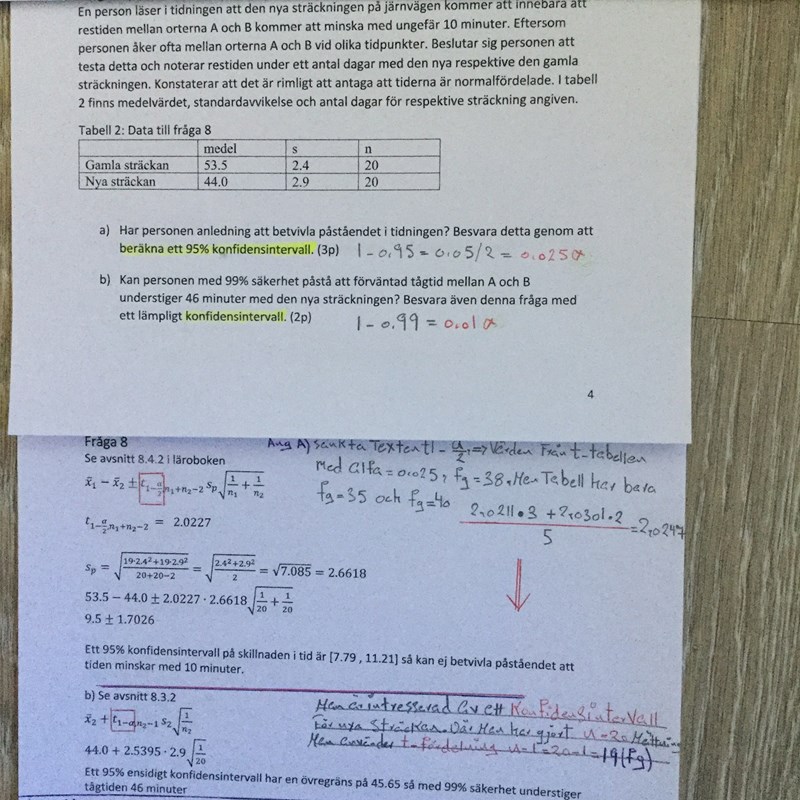 En person läser i tidningen att den nya sträckningen på järnvägen kommer att innebära att
restiden mellan orterna A och B kommer att minska med ungefär 10 minuter. Eftersom
personen åker ofta mellan orterna A och B vid olika tidpunkter. Beslutar sig personen att
testa detta och noterar restiden under ett antal dagar med den nya respektive den gamla
sträckningen. Konstaterar att det är rimligt att antaga att tiderna är normalfördelade. I tabell
2 finns medelvärdet, standardavvikelse och antal dagar för respektive sträckning angiven.
Tabell 2: Data till fråga 8
medel s n
Gamla sträckan 53.5 2.4 20
Nya sträckan 44.0 2.9 20
a) Har personen anledning att betvivla påståendet i tidningen? Besvara detta genom att
beräkna ett 95% konfidensintervall. (3p) 1-0,95=0,05/2=0,025 α
b) Kan personen med 99% säkerhet påstå att förväntad tågtid mellan A och B
understiger 46 minuter med den nya sträckningen? Besvara även denna fråga med
ett lämpligt konfidensintervall. (2p) 1-0,99=0,01 α
4
Fråga 8
Ang A) sänkta Texten t1-α/2, => Värden Från t-tabellen
Se avsnitt 8.4.2 i läroboken
Med Alfa=0,025, fg=38. Men Tabell har bara
x̄₁ − x̄₂ ± t₁₋α/₂,n₁+n₂−2 sp√(1/n₁ + 1/n₂)
fg=35 och fg=40
(2,0211·3 + 2,0301·2)/5 = 2,0247
t₁₋α/₂,n₁+n₂−2 = 2.0227
sp = √((19·2.4²+19·2.9²)/(20+20−2)) = √((2.4²+2.9²)/2) = √7.085 = 2.6618
53.5 − 44.0 ± 2.0227 · 2.6618 √(1/20 + 1/20)
9.5 ± 1.7026
Ett 95% konfidensintervall på skillnaden i tid är [7.79 , 11.21] så kan ej betvivla påståendet att
tiden minskar med 10 minuter.
b) Se avsnitt 8.3.2
Men är intresserad av ett Konfidensintervall
x̄₂ + t₁₋α,n₂−1 s₂√(1/n₂)
För nya Sträckan. Där Man har gjort n=20 Mättning
Man använder t-fördelning n-1=20-1=19(fg)
44.0 + 2.5395 · 2.9 √(1/20)
Ett 95% ensidigt konfidensintervall har en övregräns på 45.65 så med 99% säkerhet understiger
tågtiden 46 minuter